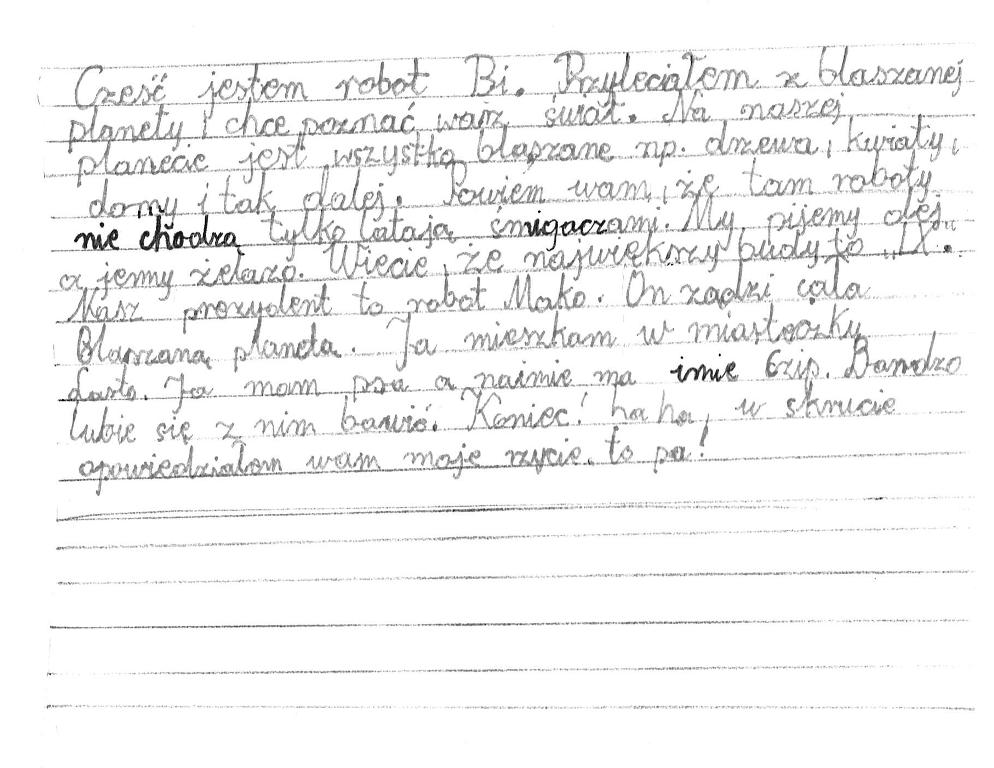 Cześć jestem robot Bi. Przyleciałem z blaszanej
planety i chce poznać warz świat. Na naszej
planecie jest wszystko blaszane np. drzewa, kwiaty,
domy i tak dalej. Powiem wam, że tam roboty
nie chodzą tylko latają śmigaczami. My pijemy olej
a jemy żelazo. Wiecie, że największy budy to „IX".
Nasz prezydent to robot Mako. On ządzi cała
Blaszaną planeta. Ja mieszkam w miasteczku
Ja mam psa a naimie ma imie Gzip. Bardzo
lubie się z nim bawić. Koniec! ha ha, w skrucie
opowiedziałem wam moje rzycie. to pa!